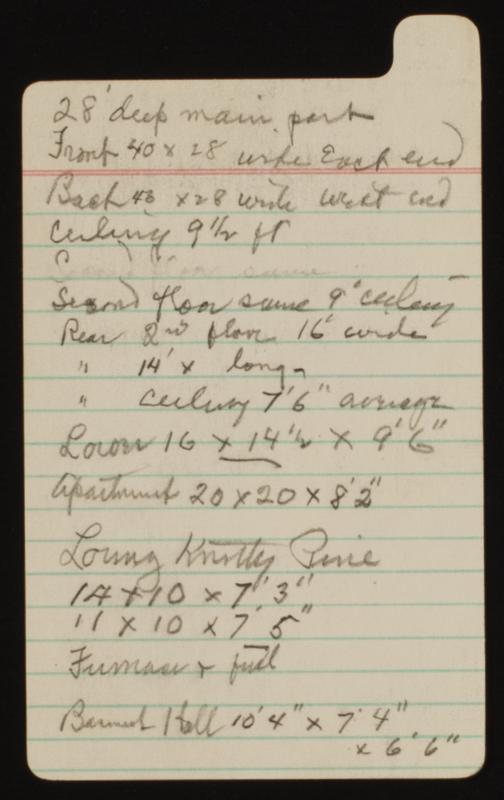 28' deep main part
Front 40 x 28 wide East end
Back 46 x 28 wide West end
Ceiling 9 1/2 ft
Second floor same
Second floor same 9' ceiling
Rear 2nd floor 16' wide
" 14' x long
" ceiling 7' 6" average
Lower 16 x 14 1/2 x 9' 6"
Apartment 20 x 20 x 8' 2"
Knotty Pine
14 x 10 x 7' 3"
11 x 10 x 7' 5"
Furnace + fuel
Hall 10' 4" x 7' 4"
x 6' 6"